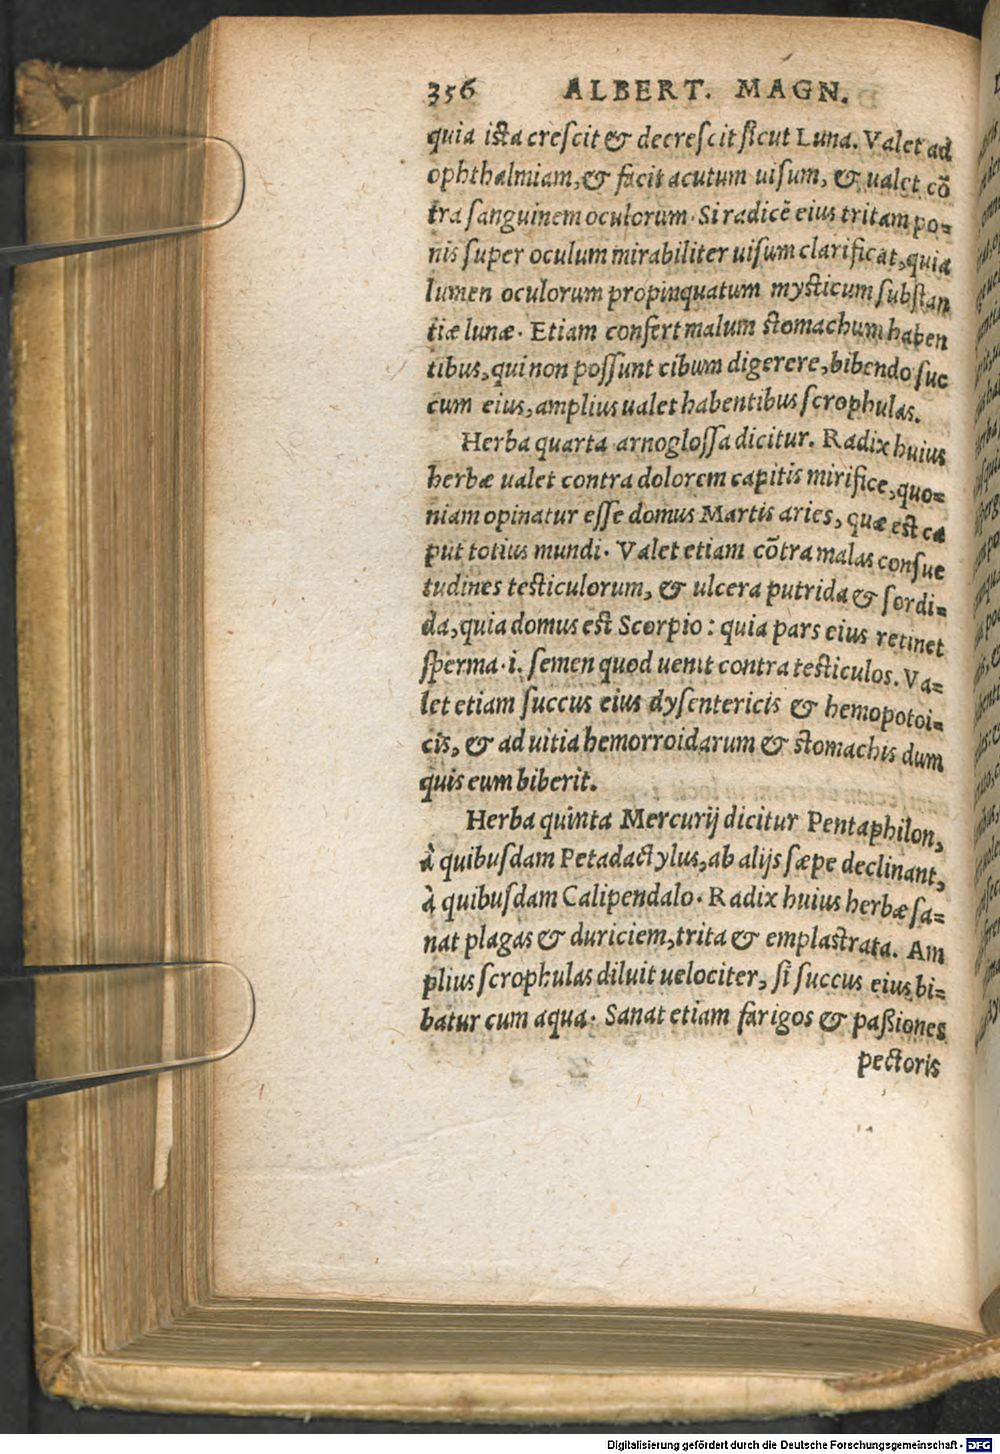 356 ALBERT. MAGN.
quia ista crescit & decrescit sicut Luna. Valet ad
ophthalmiam, & facit acutum uisum, & ualet cō
tra sanguinem oculorum. Si radicē eius tritam po=
nis super oculum mirabiliter uisum clarificat, quia
lumen oculorum propinquatum mysticum substan
tiæ lunæ. Etiam confert malum stomachum haben
tibus, qui non possunt cibum digerere, bibendo suc
cum eius, amplius ualet habentibus scrophulas.
Herba quarta arnoglossa dicitur. Radix huius
herbæ ualet contra dolorem capitis mirifice, quo=
niam opinatur esse domus Martis aries, quæ est ca
put totius mundi. Valet etiam cōtra malas consue
tudines testiculorum, & ulcera putrida & sordi=
da, quia domus est Scorpio: quia pars eius retinet
sperma .i. semen quod uenit contra testiculos. Va=
let etiam succus eius dysentericis & hemopotoi=
cis, & ad uitia hemorroidarum & stomachis dum
quis eum biberit.
Herba quinta Mercurij dicitur Pentaphilon,
à quibusdam Petadactylus, ab alijs sæpe declinant,
à quibusdam Calipendalo. Radix huius herbæ sa=
nat plagas & duriciem, trita & emplastrata. Am
plius scrophulas diluit uelociter, si succus eius bi=
batur cum aqua. Sanat etiam farigos & paßiones
pectoris
Digitalisierung gefördert durch die Deutsche Forschungsgemeinschaft - DFG